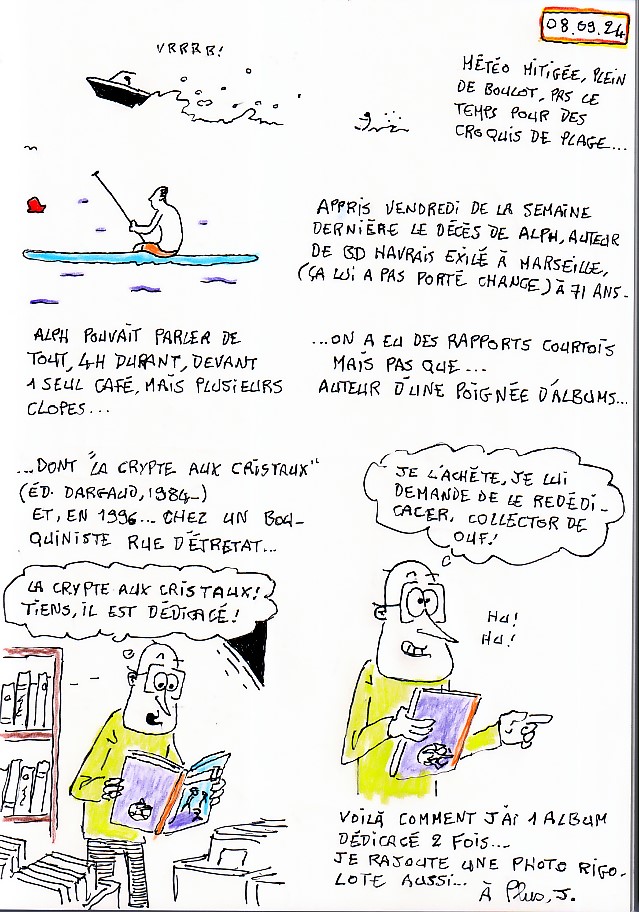 08.09.24
VRRRB!
MÉTÉO MITIGÉE, PLEIN
DE BOULOT, PAS LE
TEMPS POUR DES
CROQUIS DE PLAGE...
APPRIS VENDREDI DE LA SEMAINE
DERNIÈRE LE DÉCÈS DE ALPH, AUTEUR
DE BD HAVRAIS EXILÉ À MARSEILLE,
(ÇA LUI A PAS PORTÉ CHANCE) À 71 ANS-
ALPH POUVAIT PARLER DE
TOUT, 4H DURANT, DEVANT
1 SEUL CAFÉ, MAIS PLUSIEURS
CLOPES...
...ON A EU DES RAPPORTS COURTOIS
MAIS PAS QUE...
AUTEUR D'UNE POIGNÉE D'ALBUMS...
...DONT "LA CRYPTE AUX CRISTAUX"
(ÉD. DARGAUD, 1984-)
ET, EN 1996... CHEZ UN BOU-
QUINISTE RUE D'ÉTRETAT...
JE L'ACHÈTE, JE LUI
DEMANDE DE LE REDÉDI-
CACER, COLLECTOR DE
OUF!
LA CRYPTE AUX CRISTAUX!
TIENS, IL EST DÉDICACÉ!
HU!
HU!
VOILÀ COMMENT J'AI 1 ALBUM
DÉDICACÉ 2 FOIS...
JE RAJOUTE UNE PHOTO RIGO-
LOTE AUSSI...
À Plus, J.